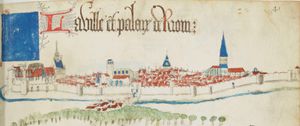 La ville et palais de Riom: